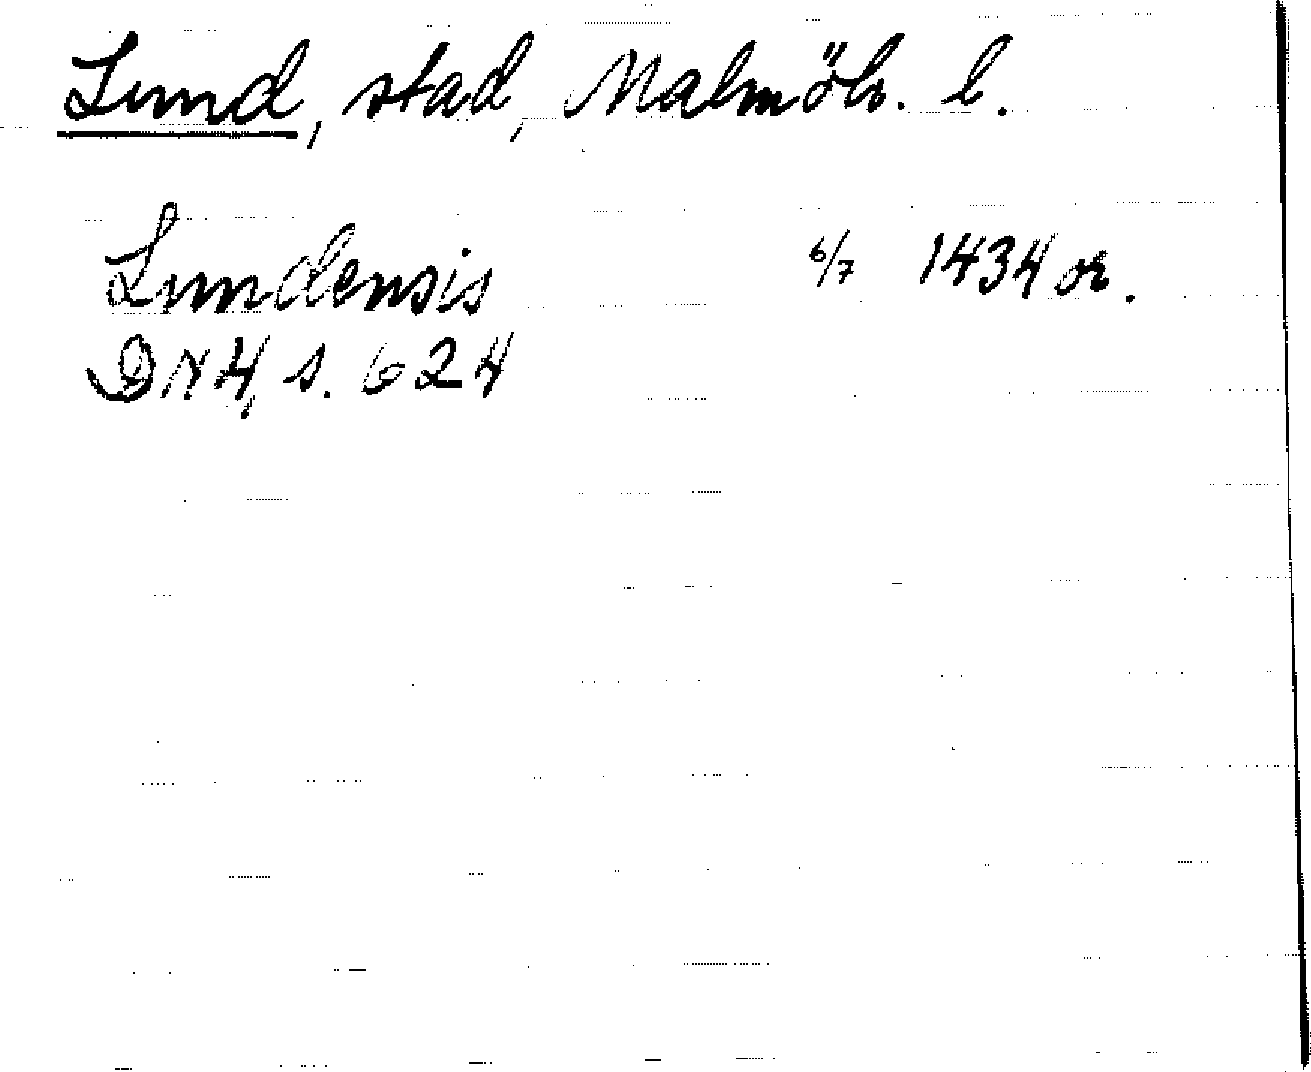 Lund, stad, Malmöh. l.
Lundensis 6/7 1434 or.
DN 4, s. 624